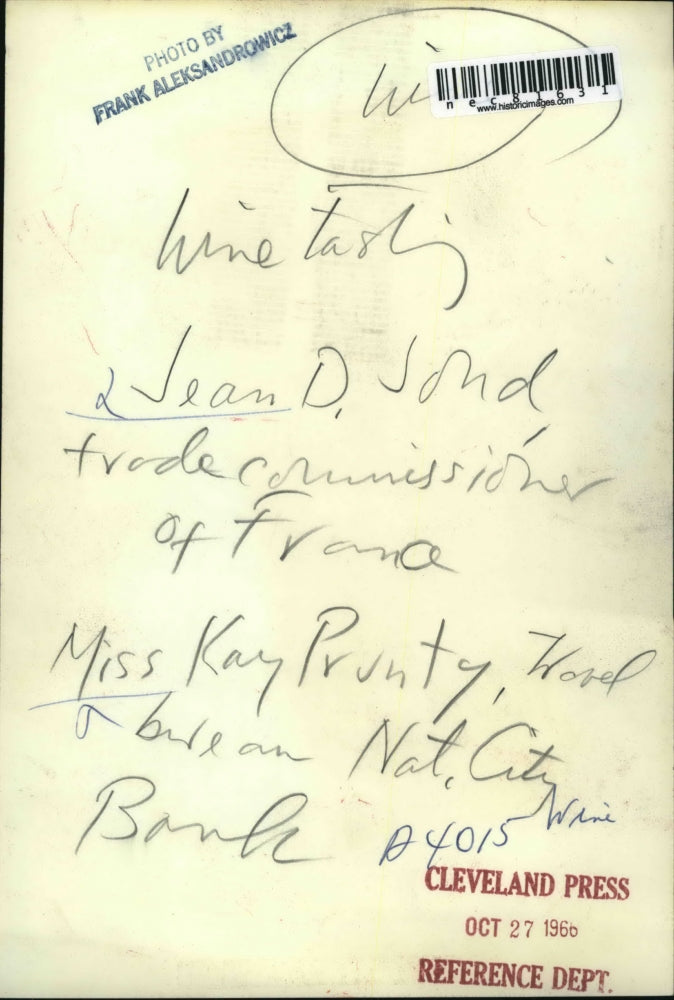 PHOTO BY
FRANK ALEKSANDROWICZ
nec81631
www.historicimages.com
Wine tasting
Jean D.
trade commissioner
of France
Miss Kay Prunty, Travel
bureau Nat. City
Bank
A4015 Wine
CLEVELAND PRESS
OCT 27 1966
REFERENCE DEPT.